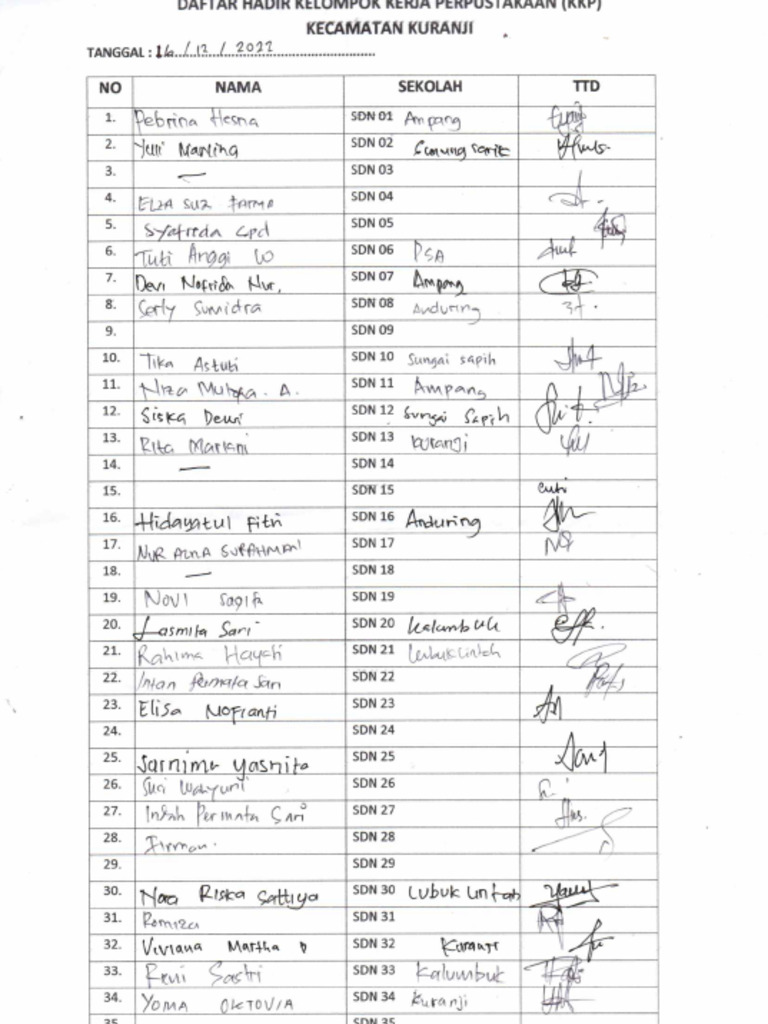 DAFTAR HADIR KELOMPOK KERJA PERPUSTAKAAN (KKP)
KECAMATAN KURANJI
TANGGAL : 16 / 12 / 2022
NO NAMA SEKOLAH TTD
1. Pebrina Hesna SDN 01 Ampang
2. Yuni SDN 02 Gunung sarik
3. — SDN 03
4. SDN 04
5. SDN 05
6. Tuti Anggi W SDN 06 PSA
7. Devi Nofrida Nur, SDN 07 Ampang
8. Serly Sumidra SDN 08 Anduring
9. SDN 09
10. Tika Astuti SDN 10 Sungai sapih
11. Niza A. SDN 11 Ampang
12. Siska Dewi SDN 12 Sungai Sapih
13. Rita Mariani SDN 13 kuranji
14. — SDN 14
15. SDN 15
16. Hidayatul Fitri SDN 16 Anduring
17. NUR SDN 17
18. — SDN 18
19. NOVI SDN 19
20. Lasmita Sari SDN 20 kalumbuk
21. Rahima Hayati SDN 21 Lubuk Lintah
22. Intan Permata Sari SDN 22
23. Elisa Nofrianti SDN 23
24. SDN 24
25. Yasnita SDN 25
26. Suci Wahyuni SDN 26
27. Indah Permata Sari SDN 27
28. Firman. SDN 28
29. SDN 29
30. Nora Riska SDN 30 Lubuk Lintah
31. Romiza SDN 31
32. Viviana Martha D SDN 32 Kuranji
33. Reni Sastri SDN 33 Kalumbuk
34. YOMA OKTOVIA SDN 34 Kuranji
35. SDN 35